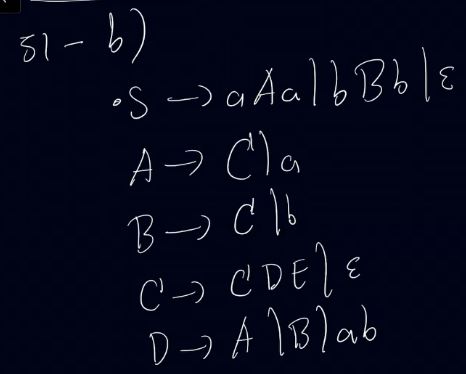 51 - b)
.S → aAa | bBb | ε
A → C | a
B → C | b
C → CDE | ε
D → A | B | ab